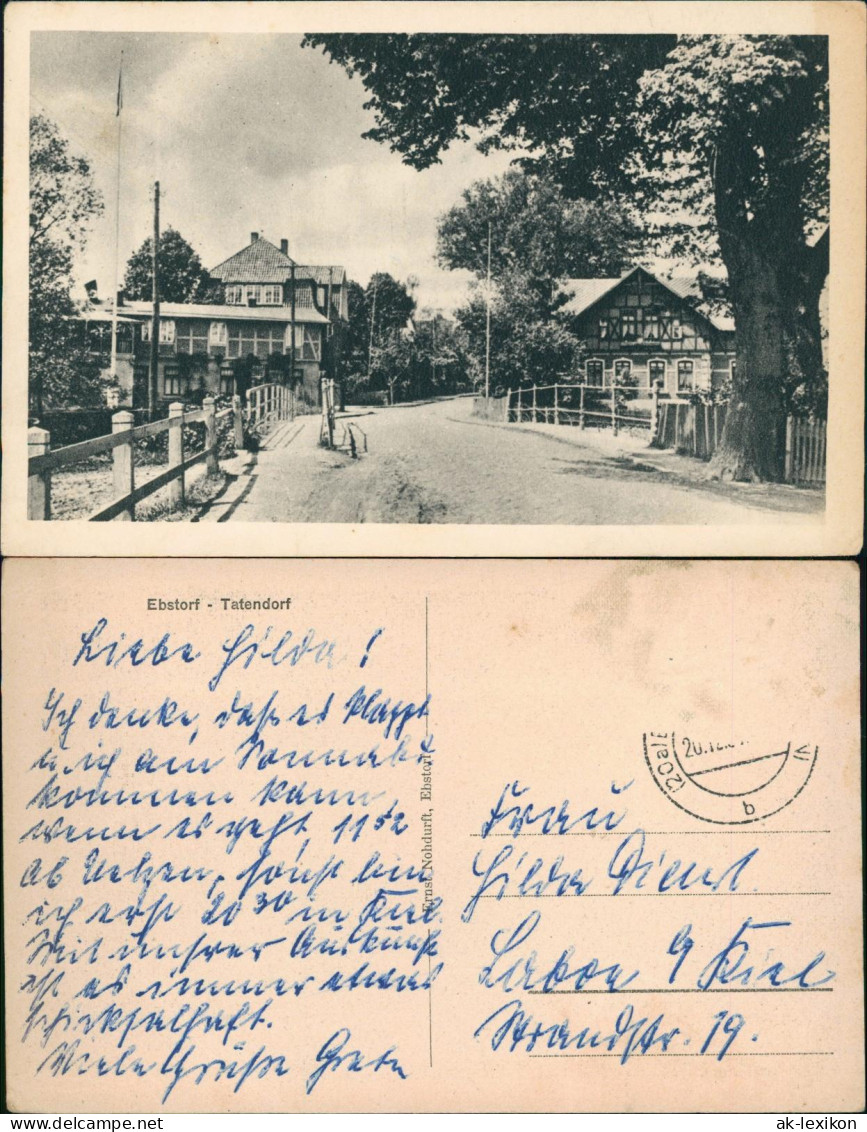 Ebstorf - Tatendorf
Liebe Hilda!
Ich denke, daß es klappt
u. ich am Sonnabd
kommen kann,
wenn es geht, 11 52
ab Uelzen, sonst bin
ich erst 20 30 in Kiel.
Mit unsrer Auskunft
ist es immer etwas
schicksalhaft.
Viele Grüße Grete
Ernst Nohdurft, Ebstorf
(20a)E
20.12.
b
Frau
Hilda Dienst
Laboe b/ Kiel
Strandstr. 19.
ak-ansichtskarten.de
ak-lexikon